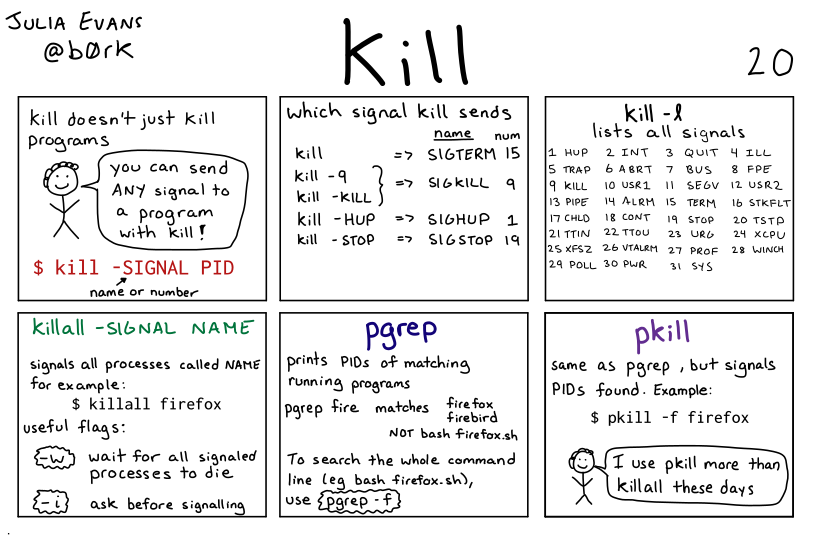 JULIA EVANS
@b0rk
kill
20
kill doesn't just kill
programs
you can send
ANY signal to
a program
with kill!
$ kill -SIGNAL PID
name or number
which signal kill sends
name num
kill => SIGTERM 15
kill -9
kill -KILL } => SIGKILL 9
kill -HUP => SIGHUP 1
kill -STOP => SIGSTOP 19
kill -l
lists all signals
1 HUP 2 INT 3 QUIT 4 ILL
5 TRAP 6 ABRT 7 BUS 8 FPE
9 KILL 10 USR1 11 SEGV 12 USR2
13 PIPE 14 ALRM 15 TERM 16 STKFLT
17 CHLD 18 CONT 19 STOP 20 TSTP
21 TTIN 22 TTOU 23 URG 24 XCPU
25 XFSZ 26 VTALRM 27 PROF 28 WINCH
29 POLL 30 PWR 31 SYS
killall -SIGNAL NAME
signals all processes called NAME
for example:
$ killall firefox
useful flags:
-w wait for all signaled
processes to die
-i ask before signalling
pgrep
prints PIDs of matching
running programs
pgrep fire matches firefox
firebird
NOT bash firefox.sh
To search the whole command
line (eg bash firefox.sh),
use pgrep -f
pkill
same as pgrep, but signals
PIDs found. Example:
$ pkill -f firefox
I use pkill more than
killall these days